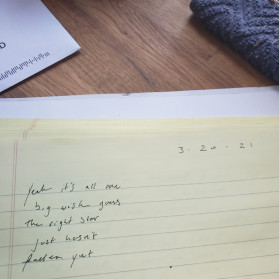 D
3 · 20 · 21
Yeah it's all one
big wish guess
the right star
just hasn't
fallen yet